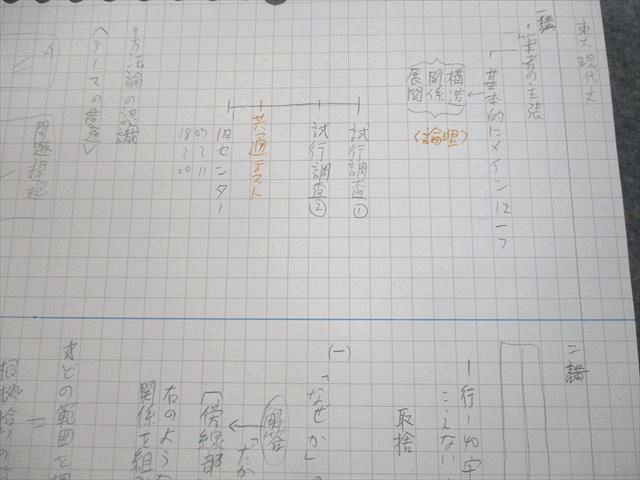 東大現代文
一講
筆者の主張
基本的にメインは一つ
構造
関係
展開
(論理)
試行調査①
試行調査②
共通テスト
旧センター
07〜11
18〜20
方法論の認識
〈テーマの普遍〉
問題提起
二講
一行−40字
こえない
取捨
(一)
「なぜか」の
解答
〈傍線部
右のような
関係を組
どの範囲を
根拠拾い